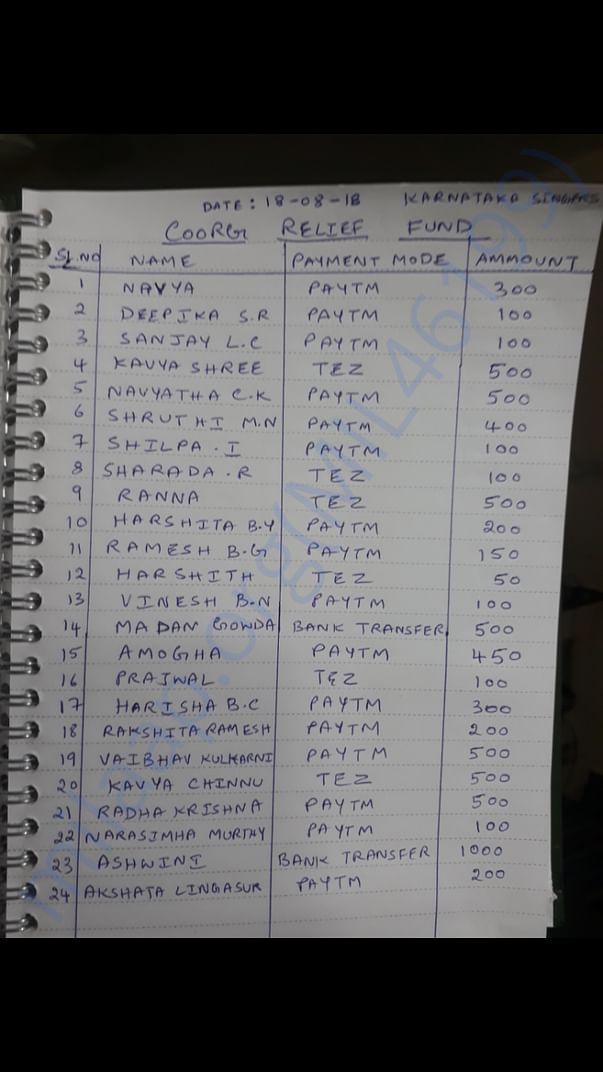 DATE: 18-08-18 KARNATAKA SINGERS
COORG RELIEF FUND
SL.NO NAME PAYMENT MODE AMMOUNT
1 NAVYA PAYTM 300
2 DEEPIKA S.R PAYTM 100
3 SANJAY L.C PAYTM 100
4 KAVYA SHREE TEZ 500
5 NAVYATHA C.K PAYTM 500
6 SHRUTHI M.N PAYTM 400
7 SHILPA.I PAYTM 100
8 SHARADA.R TEZ 100
9 RANNA TEZ 500
10 HARSHITA B.Y PAYTM 200
11 RAMESH B.G PAYTM 150
12 HARSHITH TEZ 50
13 VINESH B.N PAYTM 100
14 MADAN GOWDA BANK TRANSFER 500
15 AMOGHA PAYTM 450
16 PRAJWAL TEZ 100
17 HARISHA B.C PAYTM 300
18 RAKSHITA RAMESH PAYTM 200
19 VAIBHAV KULKARNI PAYTM 500
20 KAVYA CHINNU TEZ 500
21 RADHA KRISHNA PAYTM 500
22 NARASIMHA MURTHY PAYTM 100
23 ASHWINI BANK TRANSFER 1000
24 AKSHATA LINGASUR PAYTM 200